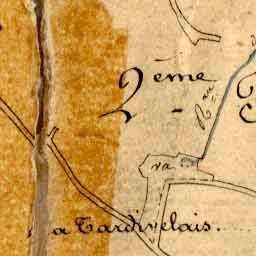 2.ème
Rau
va
a Tardivelais.